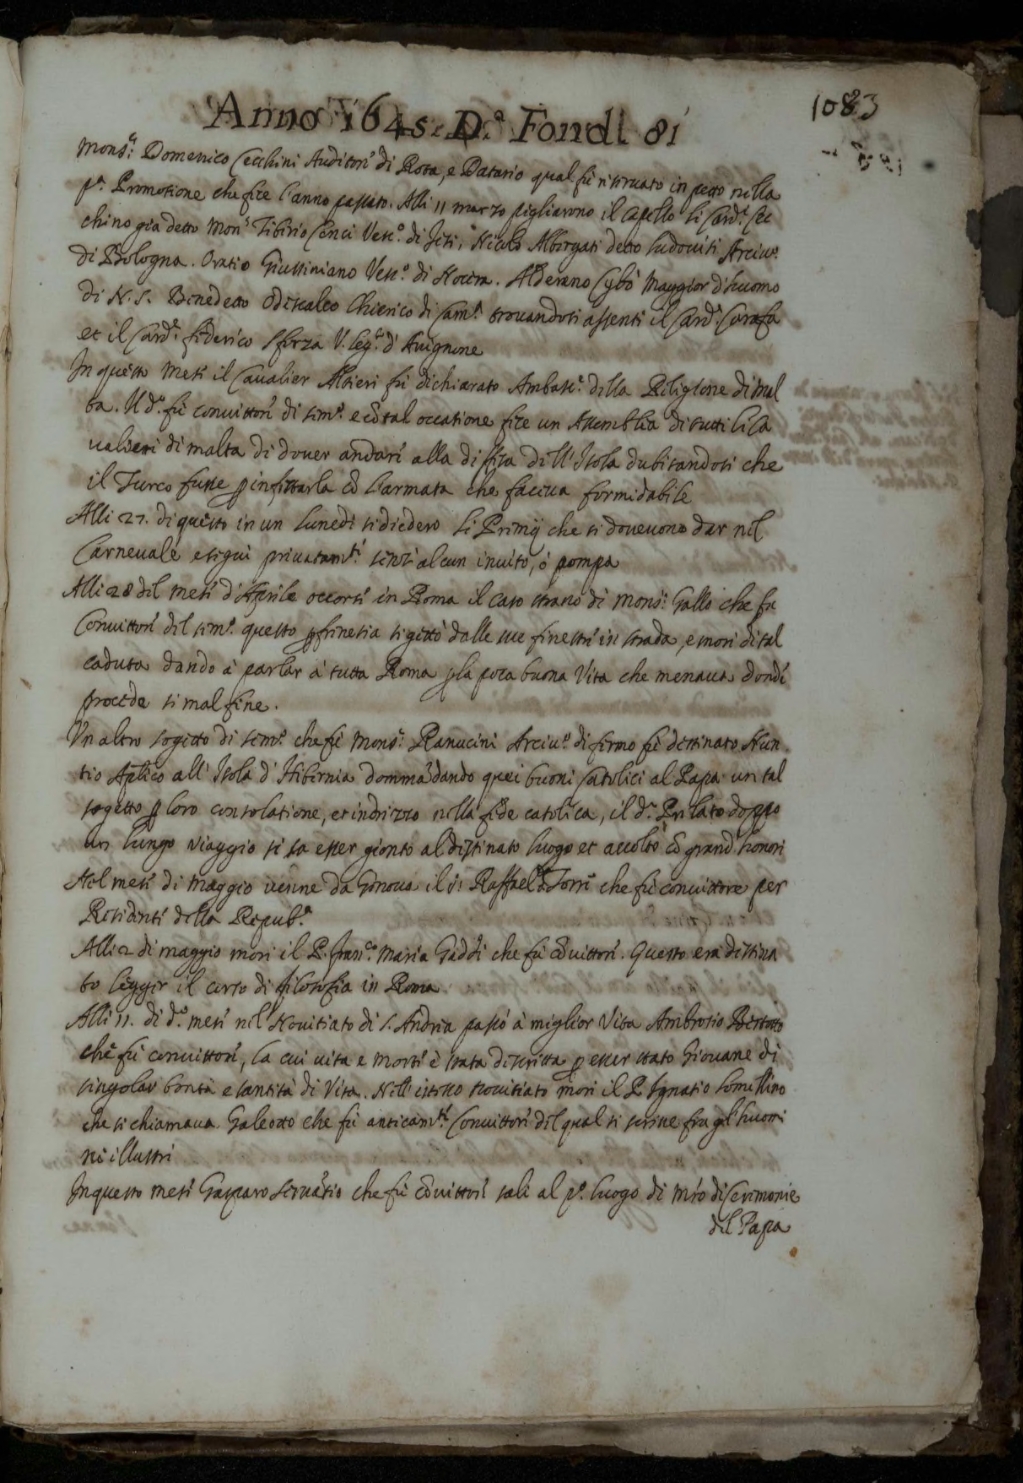 1083
Anno 1645. D.ª Fond.i 81
Mons.r Domenico Cecchini Auditor di Rota, e Datario qual fù riseruato in petto nella
p.ª Promotione che fece l'anno passato. Alli 11 marzo pigliarono il Capello li Card.i Cec
chino già detto Mons.r Tiberio Cenci Vesc.º di Jesi, Nicolò Albergati detto Ludouisi Arciu.º
di Bologna. Oratio Giustiniano Vesc.º di Nocera. Alderano Cybò Maggior d'huomo
di N. S. Benedetto Odiscalco Chierico di Cam.ª trouandosi assenti il Card.l Carafa
et il Card.l Federico Sforza V. leg.º d'Auignone
In questo mese il Caualier Altieri fù dichiarato Ambasc.r della Religione di Mal
ta. Il d.º fù conuittore di sem.º e cõ tal occasione fece un Assemblea di tutti li Ca
ualieri di malta di douer andare alla difesa dell'Isola dubitandosi che
il Turco fusse p infestarla cõ l'armata che faceua formidabile
Alli 27. di questo in un lunedi si diedero li Premij che si doueuono dar nel
Carneuale e seguì priuatam.te senz'alcun inuito, ò pompa
Alli 28 del mese d'Aprile occorse in Roma il caso strano di Mons.r Gallo che fu
Conuittore del sem.º questo p frenesia si gittò dalle sue finestre in strada, e morì di tal
caduta dando à parlar à tutta Roma p la poca buona Vita che menaua donde
procede si mal fine.
Un altro sogetto di sem.º che fù Mons.r Ranucini Arciu.º di fermo fù destinato Nun
tio Aplico all'Isola d'Hibernia dommãdando quei buoni Catolici al Papa un tal
sogetto p loro consolatione, et indrizzo nella fede catolica, il d.º Prelato doppo
un lungo viaggio si sa esser gionto al destinato luogo et accolto cõ grand'honori
Nel mese di Maggio uenne da Genoua il S.r Raffael Torre che fù conuittore per
Residente della Repub.ca
Alli 2 di maggio morì il P. Fran.co Maria Gaddi che fù cõuittore. Questo era destina
to legger il corso di filosofia in Roma
Alli 11. di d.º mese nel Nouitiato di S. Andrea passò à miglior Vita Ambrosio
che fù conuittore, la cui uita e morte è stata descritta p esser stato Giouane di
singolar bontà e santità di Vita. Nell'istesso nouitiato morì il P. Ignatio Lomellino
che si chiamaua Galeotto che fù anticam.te Conuittore del qual si scriue fra gl'huomi
ni illustri
In questo mese Gasparo Seruãtio che fù cõuittore salì al p.º luogo di mr̃o di Cerimonie
del Papa